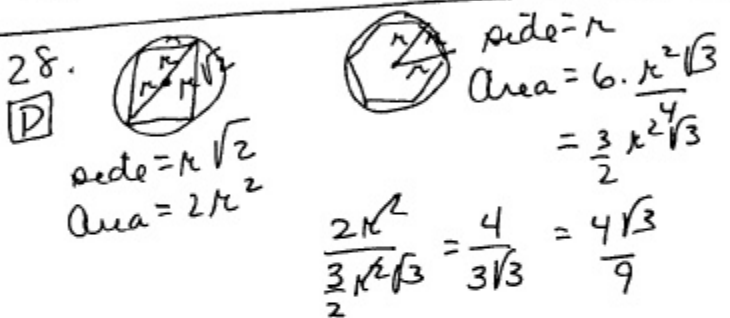 28.
D
r r r r√2
side = r√2
area = 2r²
r r r
side = r
area = 6 · r²√3/4
= 3/2 r²√3
2r² / (3/2 r²√3) = 4/(3√3) = 4√3/9